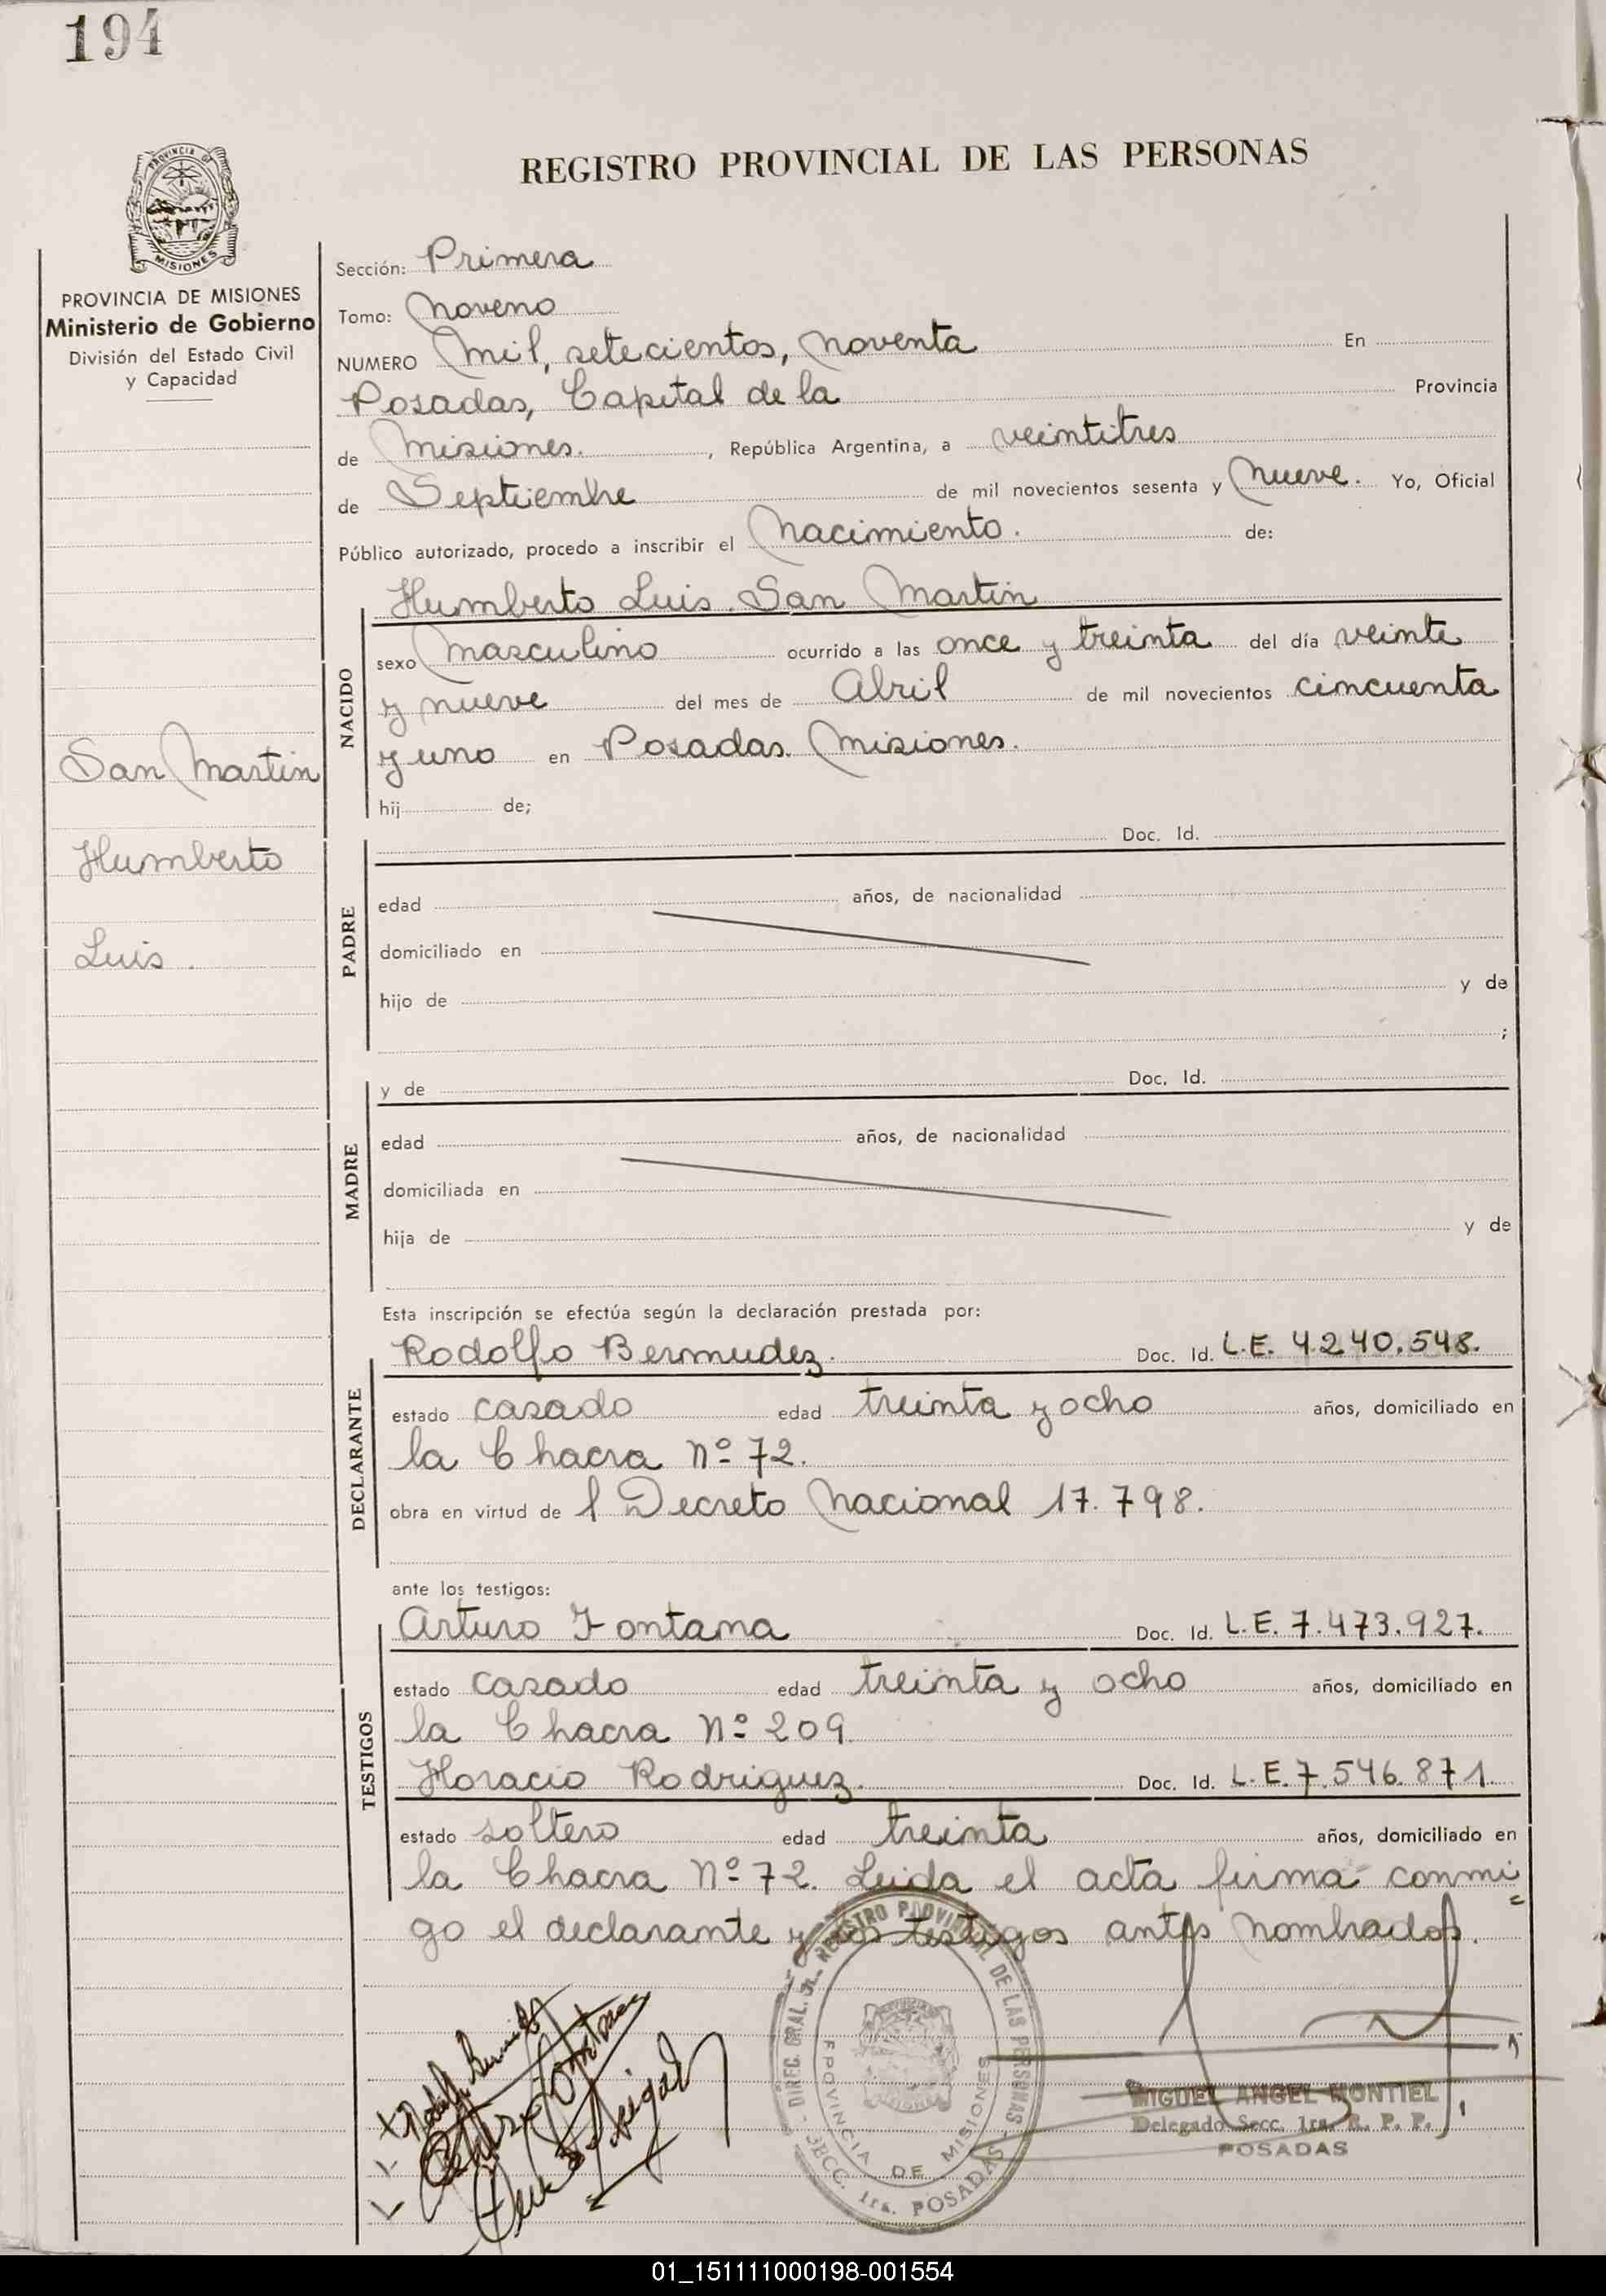 194
PROVINCIA DE
MISIONES
PROVINCIA DE MISIONES
Ministerio de Gobierno
División del Estado Civil
y Capacidad
San Martin
Humberto
Luis.
REGISTRO PROVINCIAL DE LAS PERSONAS
Sección: Primera
Tomo: Noveno
NUMERO Mil, setecientos, noventa En
Posadas, Capital de la Provincia
de Misiones. , República Argentina, a veintitres
de Septiembre de mil novecientos sesenta y Nueve. Yo, Oficial
Público autorizado, procedo a inscribir el Nacimiento. de:
NACIDO
Humberto Luis. San Martin
sexo Masculino ocurrido a las once y treinta del día veinte
y nueve del mes de Abril de mil novecientos cincuenta
y uno en Posadas. Misiones.
hij de;
PADRE
Doc. Id.
edad años, de nacionalidad
domiciliado en
hijo de y de
;
MADRE
y de Doc. Id.
edad años, de nacionalidad
domiciliada en
hija de y de
Esta inscripción se efectúa según la declaración prestada por:
DECLARANTE
Rodolfo Bermudez. Doc. Id. L.E. 4.240.548.
estado casado edad treinta y ocho años, domiciliado en
la Chacra Nº 72.
obra en virtud de l Decreto Nacional 17.798.
ante los testigos:
TESTIGOS
Arturo Fontana Doc. Id. L.E. 7.473.927.
estado casado edad treinta y ocho años, domiciliado en
la Chacra Nº 209.
Horacio Rodriguez. Doc. Id. L.E. 7.546.871.
estado soltero edad treinta años, domiciliado en
la Chacra Nº 72. Leida el acta firma conmi=
go el declarante y los testigos antes nombrados.
DIREC. GRAL. DEL REGISTRO PROVINCIAL DE LAS PERSONAS
PROVINCIA DE MISIONES
SECC. 1ra. POSADAS
MIGUEL ANGEL MONTIEL
Delegado Secc. 1ra. R. P. P.
POSADAS
01_151111000198-001554